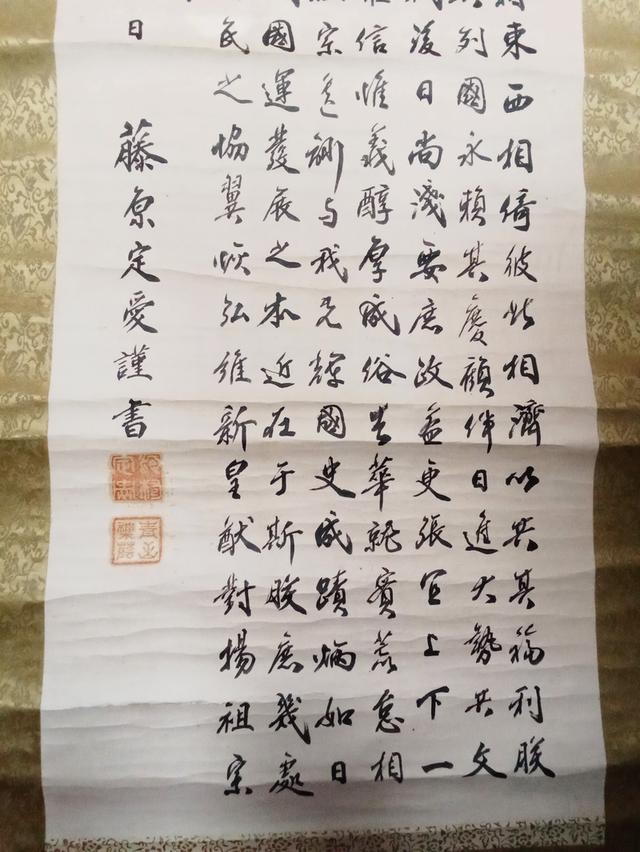 東西相倚彼此相濟以共其福利朕
列國永賴其慶顧伴日進大勢共文
後日尚淺要庶政益更張宜上下一
信惟義醇厚成俗去華就實荒怠相
宗遺訓与我光輝國史成蹟炳如日
國運發展之本近在于斯朕庶幾處
民之協翼恢弘維新皇猷對揚祖宗
日
藤原定愛謹書